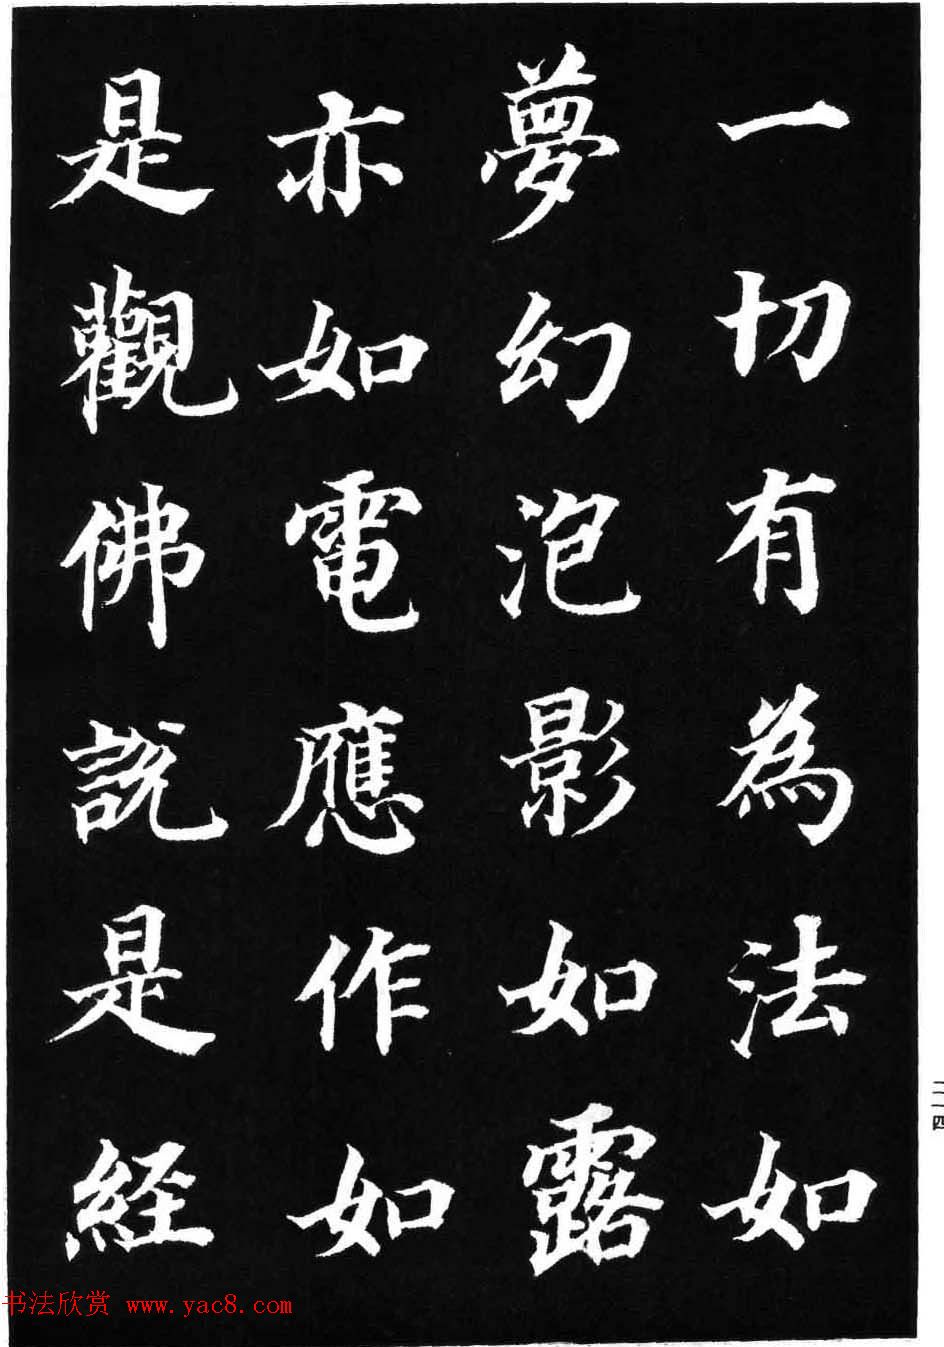 一切有為法如
夢幻泡影如露
亦如電應作如
是觀佛說是経
二一四
书法欣赏 www.yac8.com